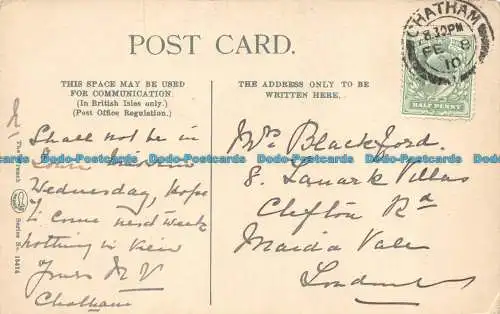 POST CARD.
THIS SPACE MAY BE USED
FOR COMMUNICATION
(In British Isles only.)
(Post Office Regulation.)
THE ADDRESS ONLY TO BE
WRITTEN HERE.
CHATHAM
8.30PM
FE 8
10
HALF PENNY
Shall not be in
Town
Wednesday, Hope
to come next week
nothing in view
Yours
Chatham
Mrs Blackford.
8. Lanark Villas
Clifton Rd
Maida Vale
London
Series No.
Dodo-Postcards Dodo-Postcards Dodo-Postcards Dodo-Postcards Dodo-Postcards